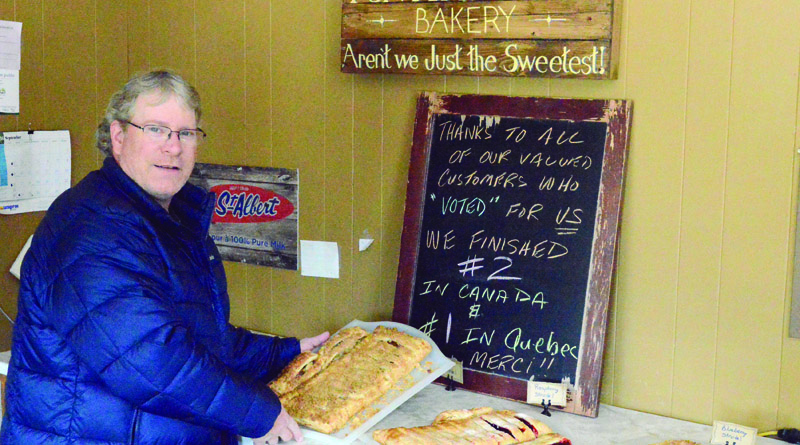 BAKERY
Aren't we Just the Sweetest!
THANKS TO ALL
OF OUR VALUED
CUSTOMERS WHO
"VOTED" FOR US
WE FINISHED
#2
IN CANADA
&
#1 IN QUEBEC
MERCI!!
St Albert
100% Pure
September